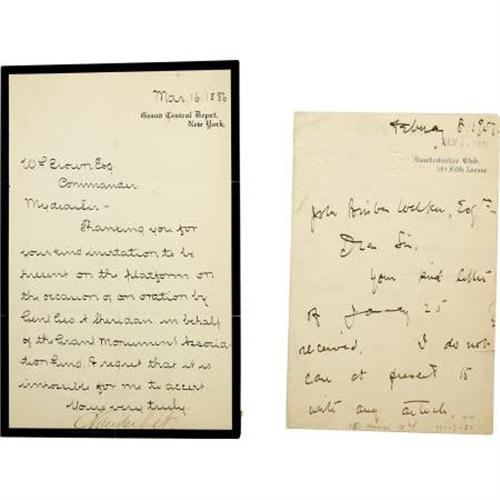 Mar 16 1886
Grand Central Depot,
New York.
W L Brown Esq
Commander
My dear Sir -
Thanking you for
your kind invitation to be
present on the platform on
the occasion of an oration by
Genl Geo A Sheridan, in behalf
of the Grant Monument Associa-
tion Fund, I regret that it is
impossible for me to accept
Yours very truly
Vanderbilt
8. 190
Knickerbocker Club,
Fifth Avenue
John Brisben Walker, Esqre
Dear Sir,
Your kind letter
of January 25
received. I do not
care at present to
write any article.